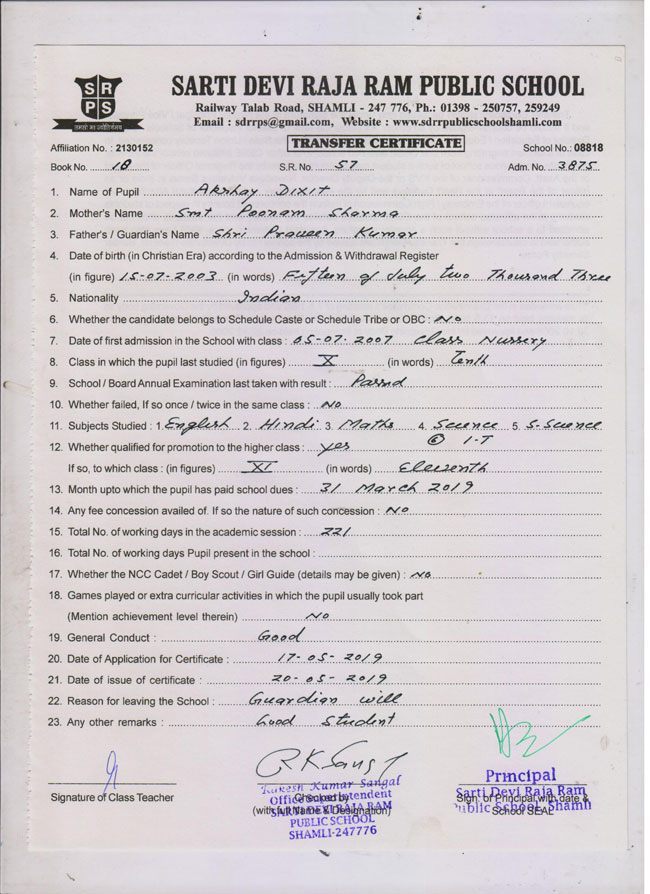 S R
P S
तमसो मा ज्योतिर्गमय
SARTI DEVI RAJA RAM PUBLIC SCHOOL
Railway Talab Road, SHAMLI - 247 776, Ph.: 01398 - 250757, 259249
Email : sdrrps@gmail.com, Website : www.sdrrpublicschoolshamli.com
Affiliation No. : 2130152 TRANSFER CERTIFICATE School No.: 08818
Book No. 18 S.R. No. 57 Adm. No. 3875
1. Name of Pupil Akshay Dixit
2. Mother's Name Smt Poonam Sharma
3. Father's / Guardian's Name Shri Praveen Kumar
4. Date of birth (in Christian Era) according to the Admission & Withdrawal Register
(in figure) 15-07-2003 (in words) Fifteen of July two Thousand Three
5. Nationality Indian
6. Whether the candidate belongs to Schedule Caste or Schedule Tribe or OBC : No
7. Date of first admission in the School with class : 05-07-2007 Class Nursery
8. Class in which the pupil last studied (in figures) X (in words) Tenth
9. School / Board Annual Examination last taken with result : Passed
10. Whether failed, If so once / twice in the same class : No
11. Subjects Studied : 1. English 2. Hindi 3. Maths 4. Science 5. S-Science
⑥ I-T
12. Whether qualified for promotion to the higher class : Yes
If so, to which class : (in figures) XI (in words) Eleventh
13. Month upto which the pupil has paid school dues : 31 March 2019
14. Any fee concession availed of. If so the nature of such concession : No
15. Total No. of working days in the academic session : 221
16. Total No. of working days Pupil present in the school :
17. Whether the NCC Cadet / Boy Scout / Girl Guide (details may be given) : No
18. Games played or extra curricular activities in which the pupil usually took part
(Mention achievement level therein) No
19. General Conduct : Good
20. Date of Application for Certificate : 17-05-2019
21. Date of issue of certificate : 20-05-2019
22. Reason for leaving the School : Guardian will
23. Any other remarks : Good Student
Signature of Class Teacher
RK Sangal
Rakesh Kumar Sangal
Office Superintendent
Checked by
SARTI DEVI RAJA RAM
(with full Name & Designation)
PUBLIC SCHOOL
SHAMLI-247776
Principal
Sarti Devi Raja Ram
Sign. of Principal with date &
Public School, Shamli
School SEAL